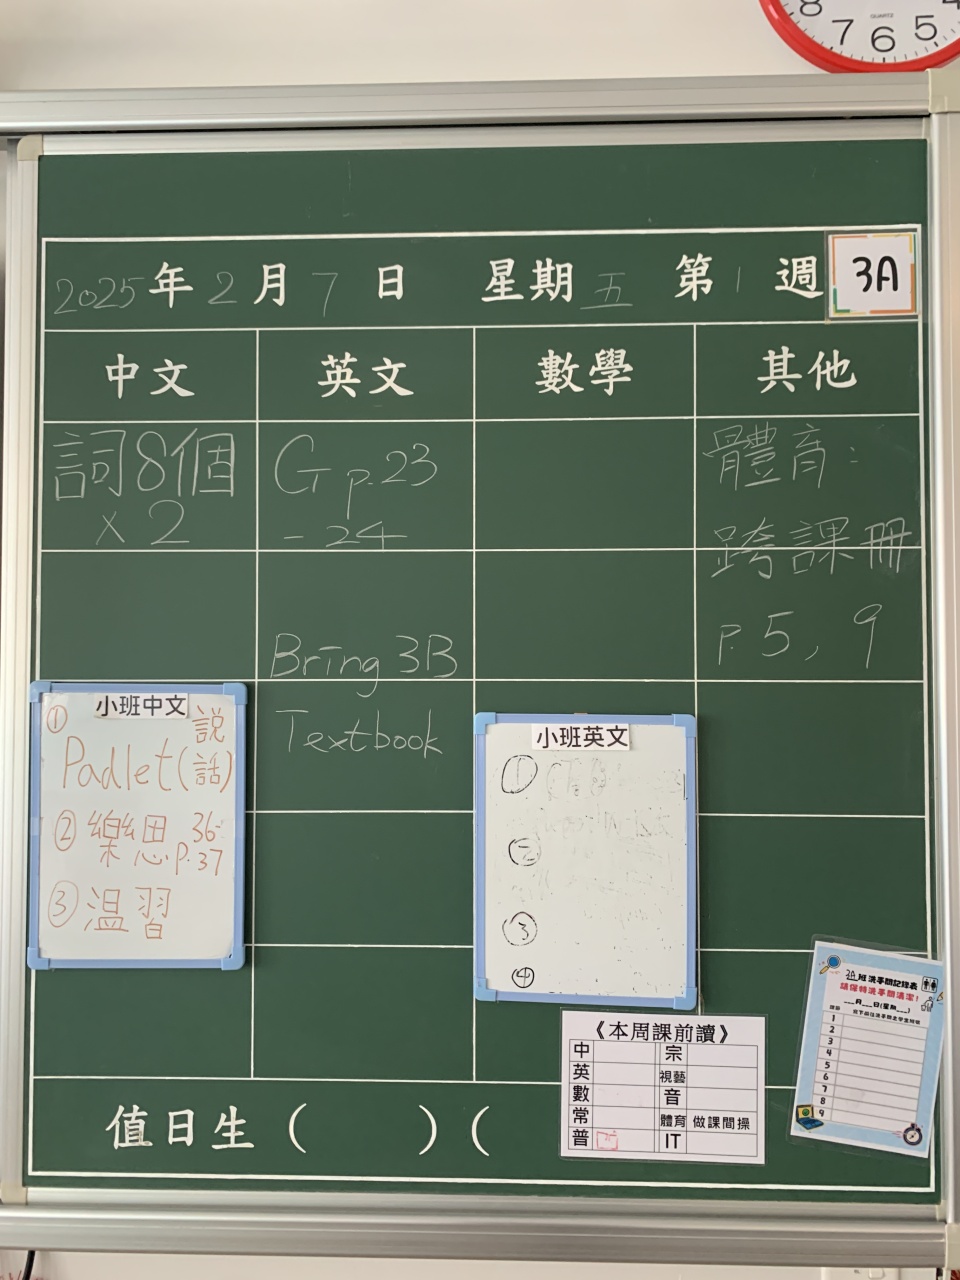 8 7 6 5 4
QUARTZ
2025年2月7日 星期五 第1週 3A
中文 英文 數學 其他
詞8個
x 2
G p.23
- 24
Bring 3B
Textbook
體育:
跨課冊
p.5, 9
小班中文
① Padlet(說話)
② 樂思 p.36-
p.37
③ 溫習
小班英文
①
②
③
④
《本周課前讀》
中 宗
英 視藝
數 音
常 體育 做課間操
普 IT
3A班洗手間記錄表
請保持洗手間清潔!
___月___日(星期___)
1
2
3
4
5
6
7
8
9
值日生 ( ) (